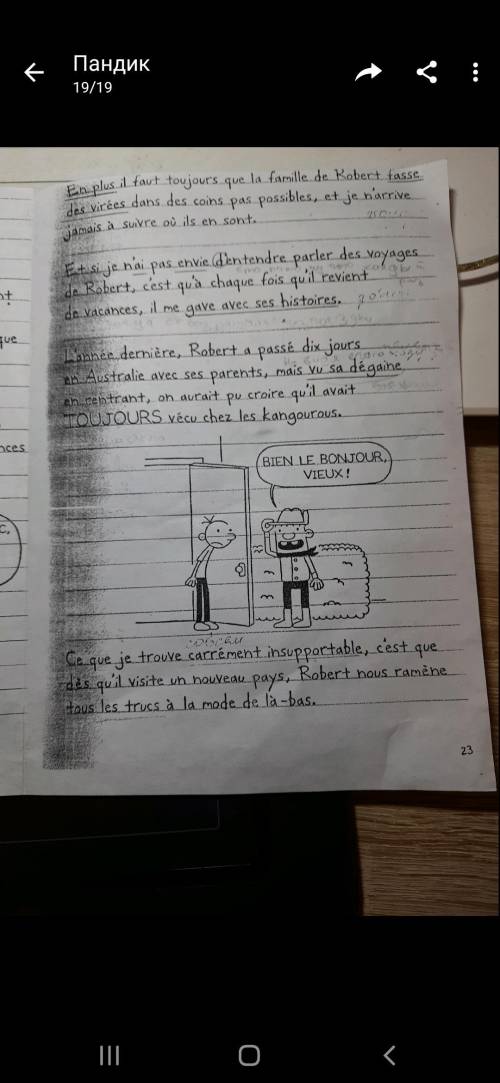 Пандик
19/19
En plus il faut toujours que la famille de Robert fasse
des virées dans des coins pas possibles, et je n'arrive
jamais à suivre où ils en sont.
Et si je n'ai pas envie d'entendre parler des voyages
de Robert, c'est qu'à chaque fois qu'il revient
de vacances, il me gave avec ses histoires.
L'année dernière, Robert a passé dix jours
en Australie avec ses parents, mais vu sa dégaine
en rentrant, on aurait pu croire qu'il avait
TOUJOURS vécu chez les kangourous.
BIEN LE BONJOUR,
VIEUX!
Ce que je trouve carrément insupportable, c'est que
dès qu'il visite un nouveau pays, Robert nous ramène
tous les trucs à la mode de là-bas.
23